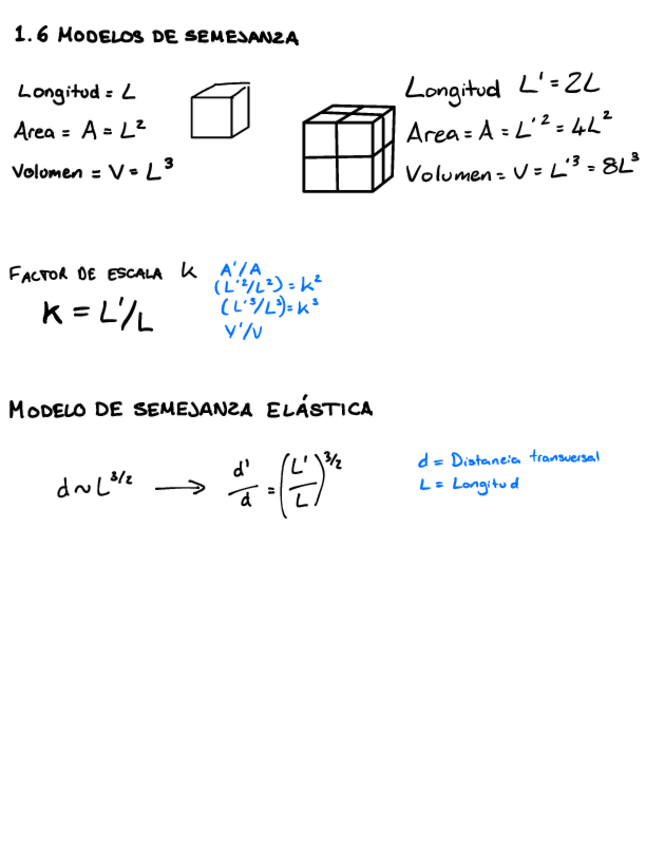 1.6 MODELOS DE SEMEJANZA
Longitud = L
Area = A = L²
Volumen = V = L³
Longitud L' = 2L
Area = A = L'² = 4L²
Volumen = V = L'³ = 8L³
FACTOR DE ESCALA K
K = L'/L
A'/A
(L'²/L²) = K²
(L'³/L³) = K³
V'/V
MODELO DE SEMEJANZA ELÁSTICA
d ~ L^3/2 → d'/d = (L'/L)^3/2
d = Distancia transversal
L = Longitud